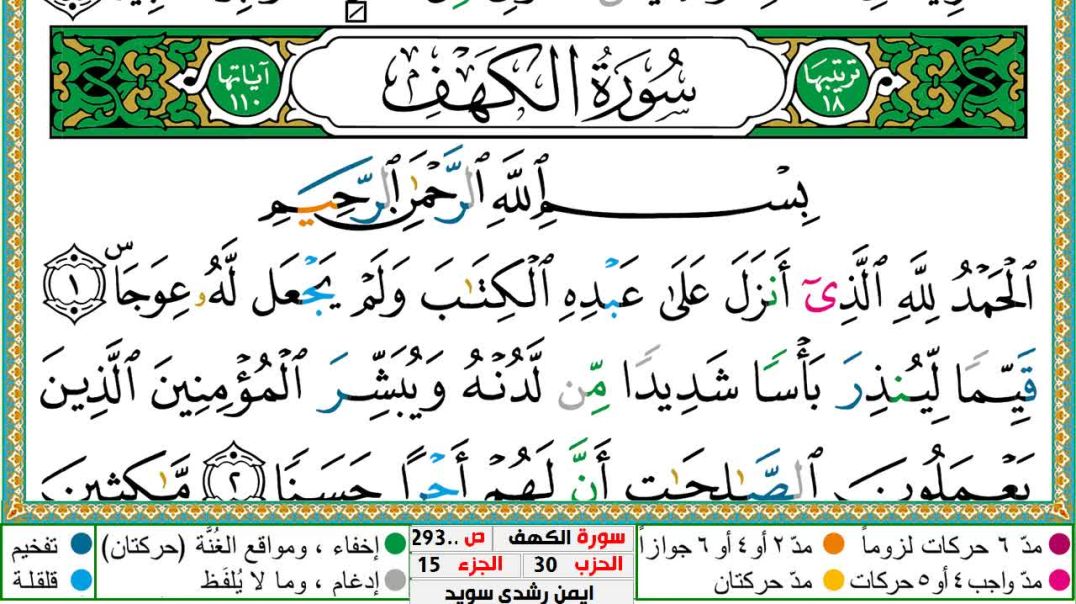 سُورَةُ الكَهْفِ
ترتيبها ١٨
آياتها ١١٠
بِسْمِ ٱللَّهِ ٱلرَّحْمَٰنِ ٱلرَّحِيمِ
ٱلْحَمْدُ لِلَّهِ ٱلَّذِىٓ أَنزَلَ عَلَىٰ عَبْدِهِ ٱلْكِتَٰبَ وَلَمْ يَجْعَل لَّهُۥ عِوَجَاۜ ١
قَيِّمًا لِّيُنذِرَ بَأْسًا شَدِيدًا مِّن لَّدُنْهُ وَيُبَشِّرَ ٱلْمُؤْمِنِينَ ٱلَّذِينَ
يَعْمَلُونَ ٱلصَّٰلِحَٰتِ أَنَّ لَهُمْ أَجْرًا حَسَنًا ٢ مَّٰكِثِينَ
مدّ ٦ حركات لزوماً
مدّ ٢ أو ٤ أو ٦ جوازاً
مدّ واجب ٤ أو ٥ حركات
مدّ حركتان
سورة الكهف ص ..293
الحزب 30 الجزء 15
ايمن رشدي سويد
إخفاء ، ومواقع الغُنَّة (حركتان)
تفخيم
إدغام ، وما لا يُلفَظ
قلقلة